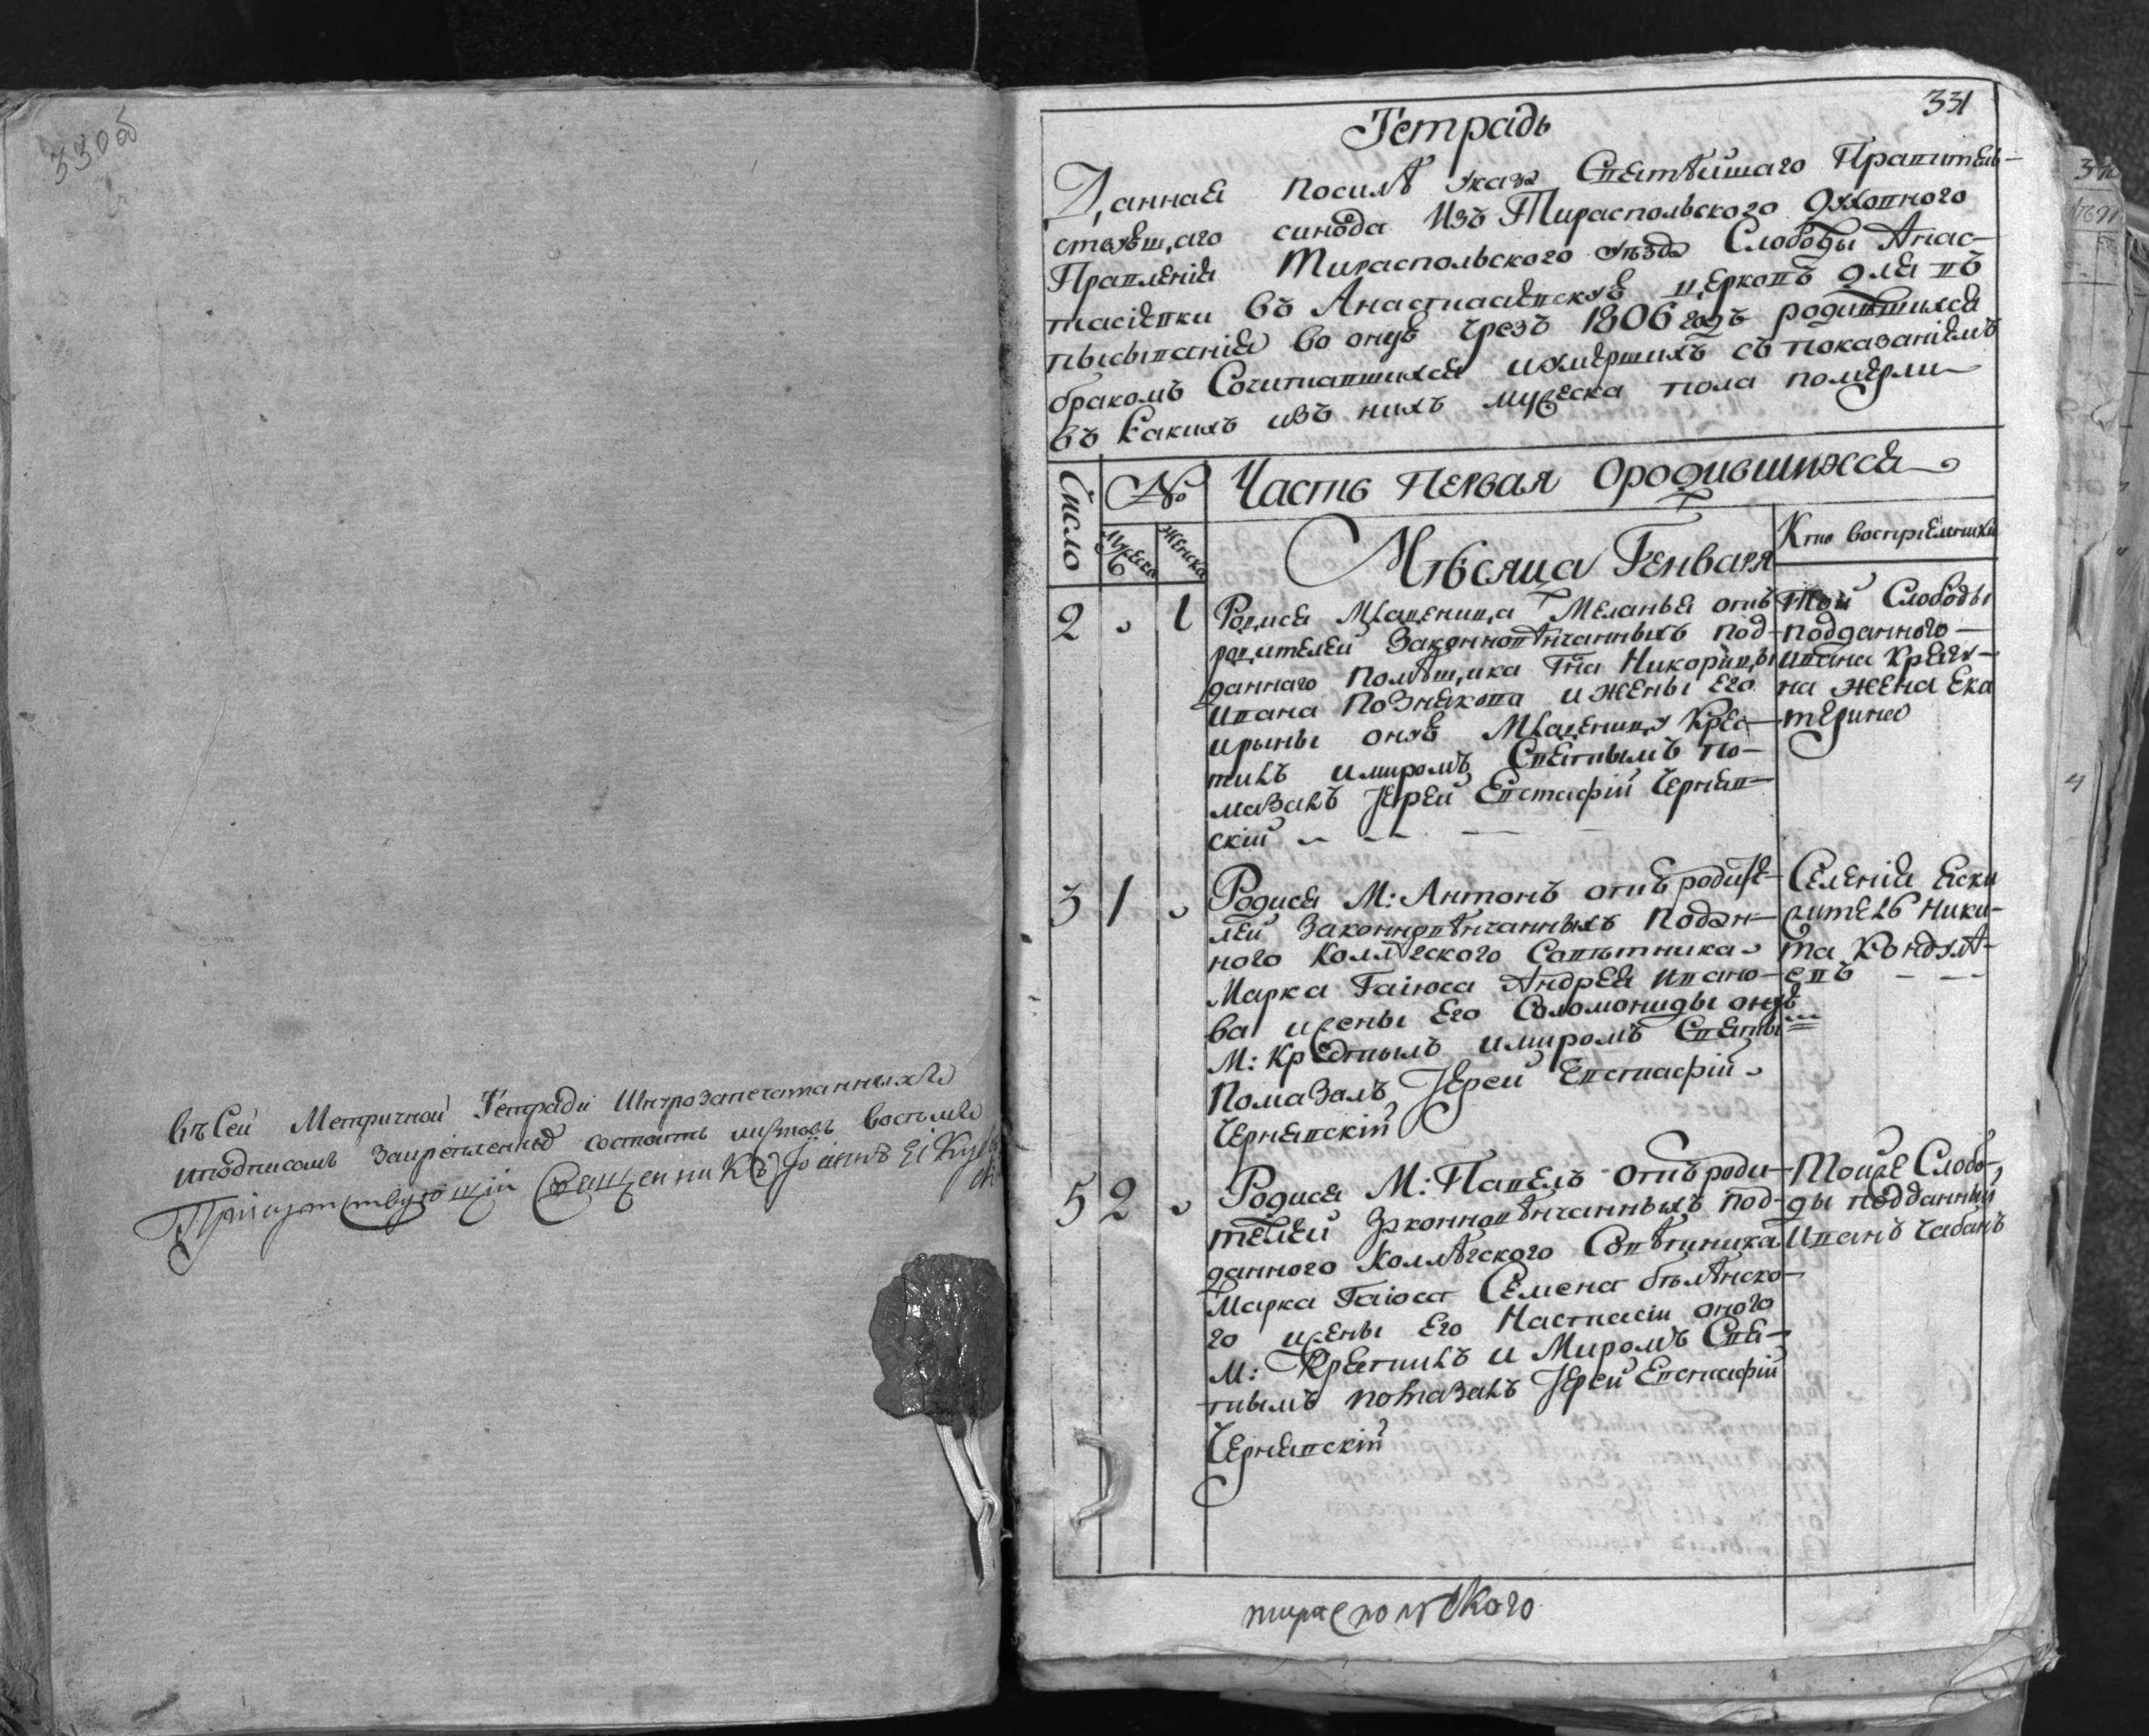 330об
въ Сей Метричной Тетради Шнурозапечатанныхъ
иподписомъ Закрепленныхъ состоитъ листовъ восемь
Присутствующій Священникъ Іоаннъ
331
Тетрадь
Данная посилѣ указа Святѣйшаго Правитель-
ствующаго синода Изъ Тираспольского Духовного
Правленія Тираспольского уѣзда Слободы Анас-
тасіевки въ Анастасіевскую церковъ для въ
писыванія во оную чрезъ 1806 годъ родившихся
бракомъ Сочитавшихся иумершихъ съ показаніемъ
въ Какихъ изъ нихъ мужеска пола померли
Число
№
Часть Первая Ородившихся
Мужеска
Женска
Мѣсяца Генваря
Кто воспріемники
2 1
Родися Младеница Меланья отъ
родителей Законновѣнчанныхъ под-
данного помѣщика Гна Никорицы
ивана Познякова и жены Его
ирыны оную Младеницу Крес-
тилъ имиромъ Святымъ по-
мазалъ Іерей Евстафій Черняв-
скій
Той Слободы
подданного
ивана
на жена Ека
терина
3 1
Родися М: Антонъ отъ родите-
лей Законновѣнчанныхъ подан-
ного Коллѣжского Совѣтника
Марка Гаіюса Андрея Ивано-
ва ижены Его Соломониды
М: имиромъ Святымъ
Помазалъ Іерей Евстафій
Чернявскій
Селенія
житель Ники-
та
евъ
5 2
Родися М: Павелъ отъ роди-
телей Зконновѣнчанныхъ под-
данного Коллѣжского Совѣтника
Марка Гаіюса Семена бѣлѣнско-
го ижены Его Настасіи оного
М: Крестилъ и Миромъ Свя-
тымъ помазалъ Іерей Евстафій
Чернявскій
Тоиже Слобо-
ды подданный
Иванъ Чабанъ
тираспольского